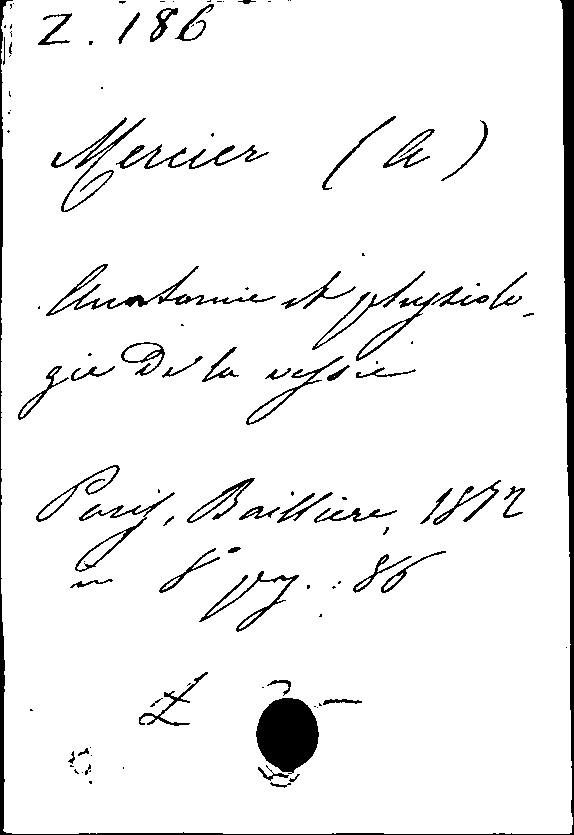 Z. 186
Mercier (A)
Anatomie et physiolo-
gie De la vessie
Paris, Baillière, 1872
in 8° pag. : 86